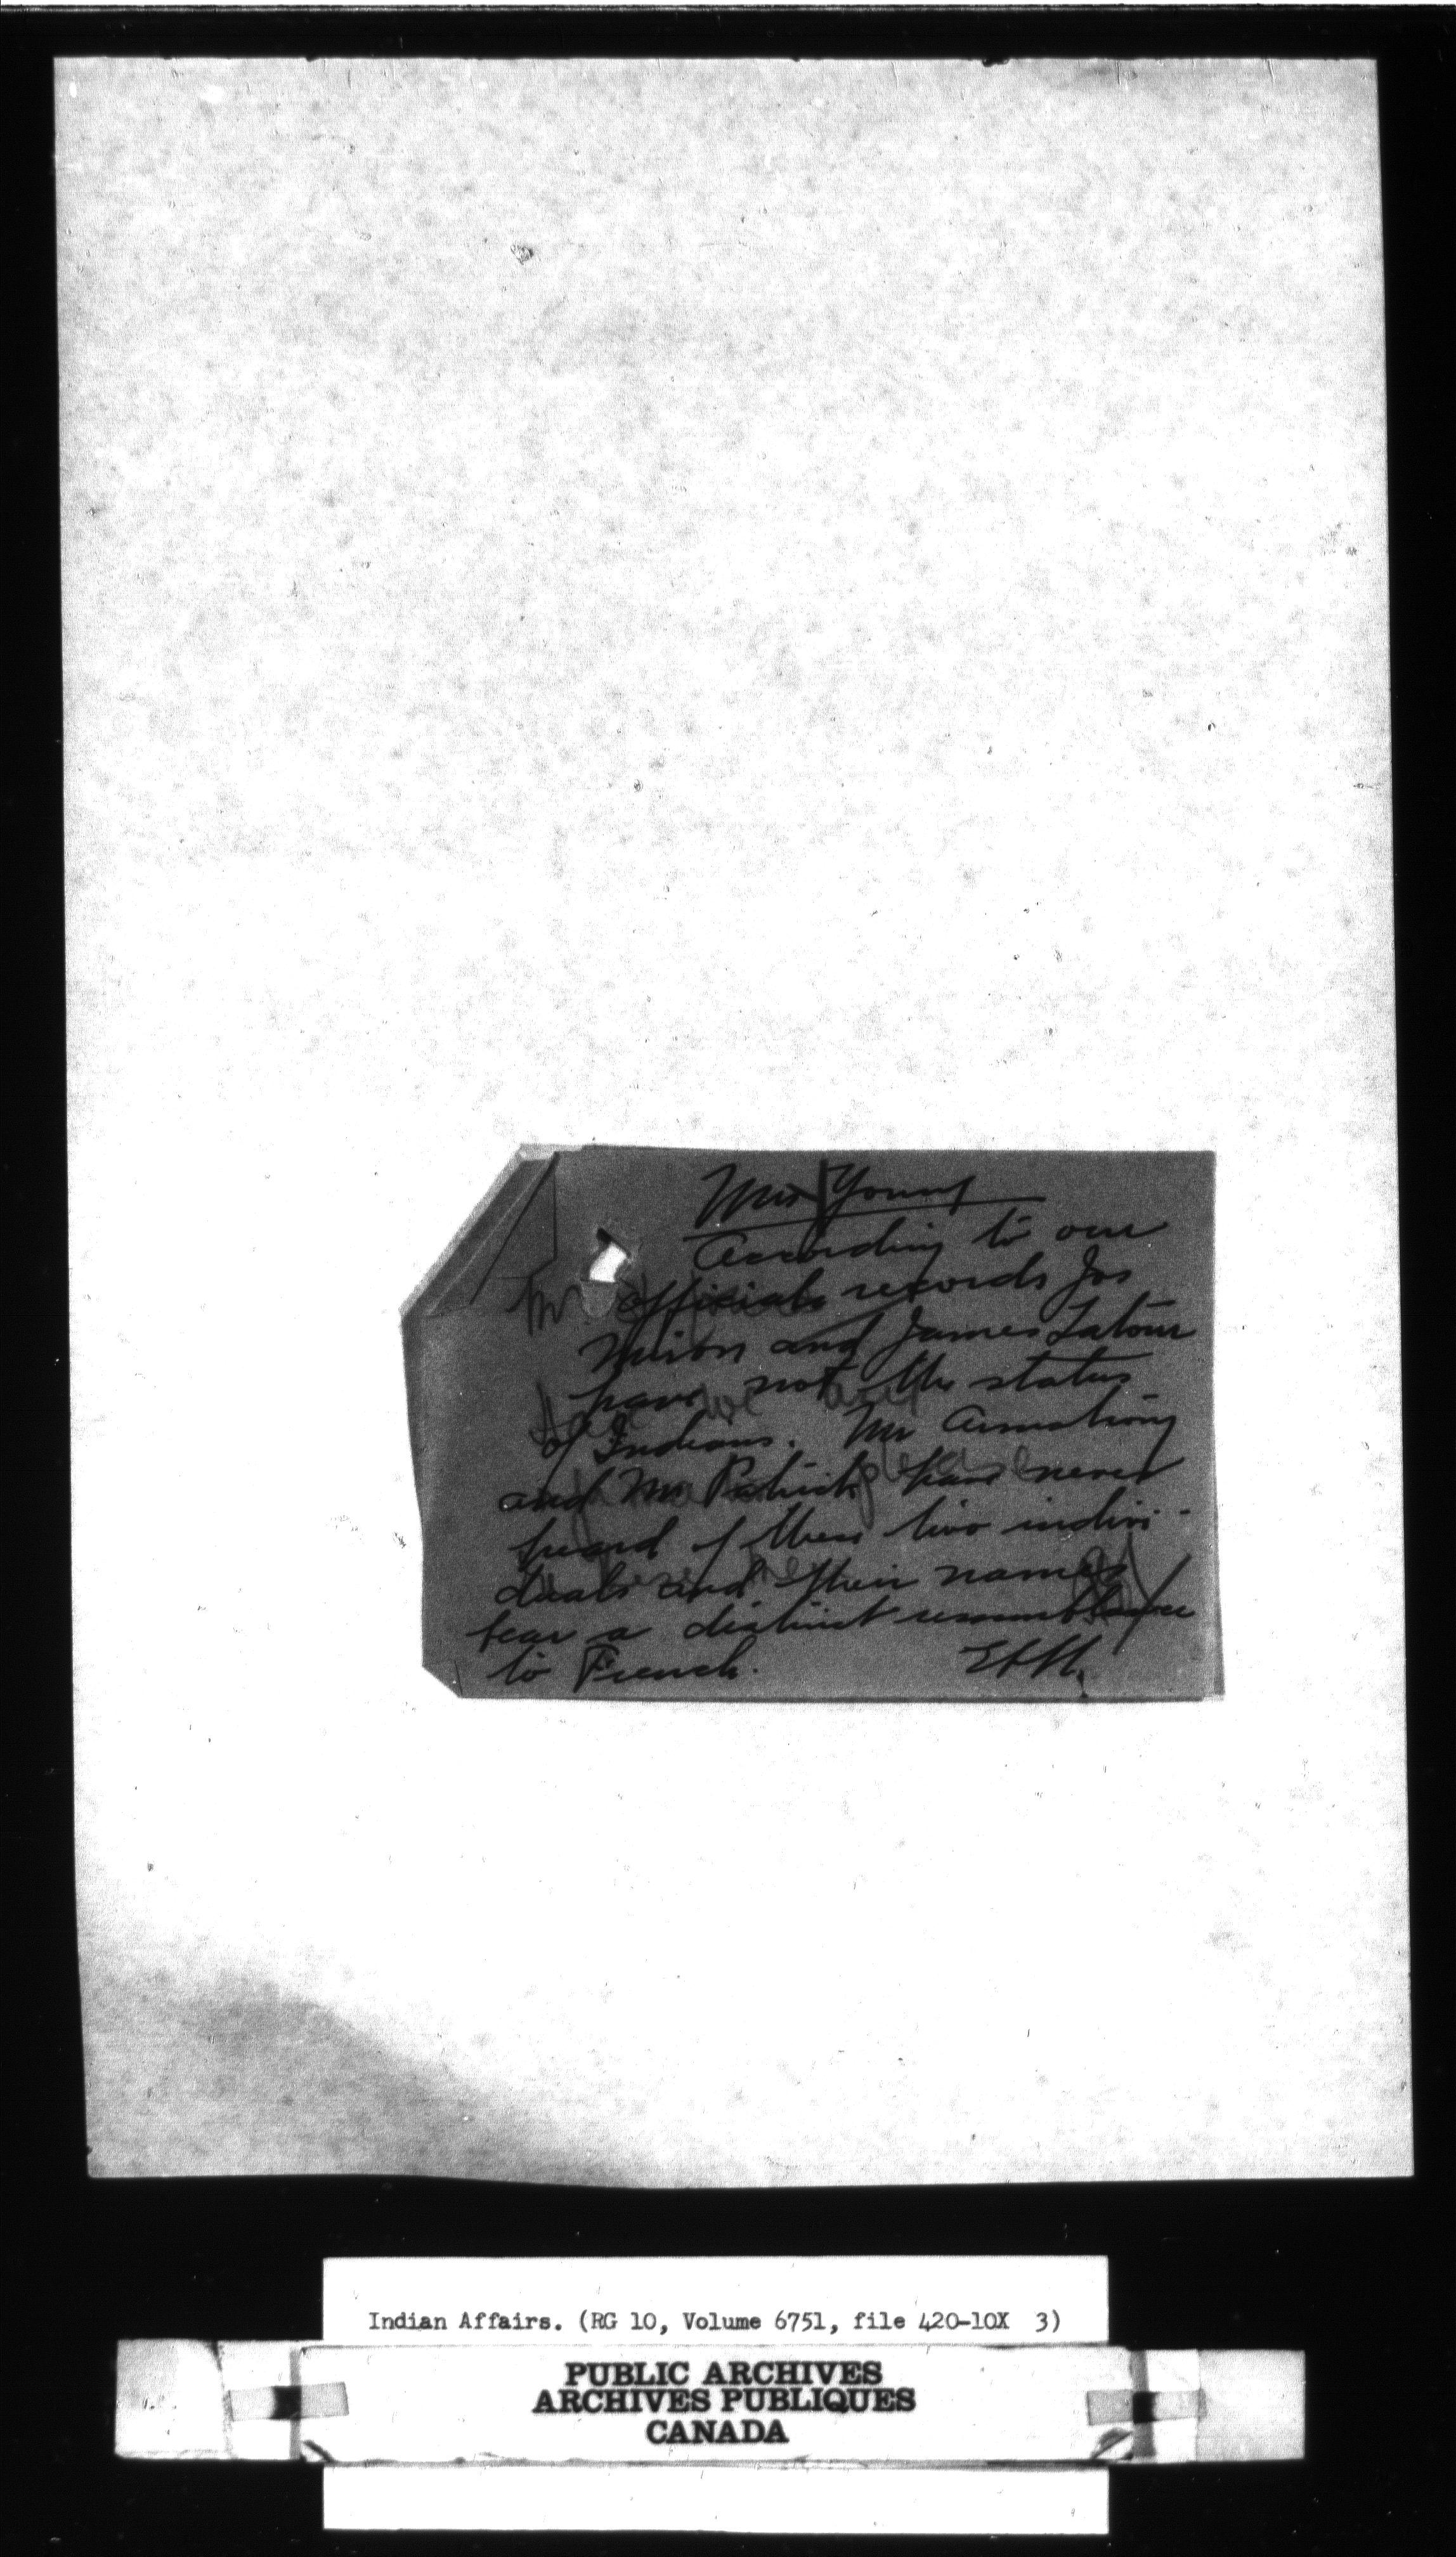 Miss Young
According to our
official records Jos
Miron and James Latour
have not the status
of Indians. Mr Armstrong
and Mr Patrick have never
heard of these two indivi-
duals and their names
bear a distinct resemblance
to French.
Indian Affairs. (RG 10, Volume 6751, file 420-10X 3)
PUBLIC ARCHIVES
ARCHIVES PUBLIQUES
CANADA